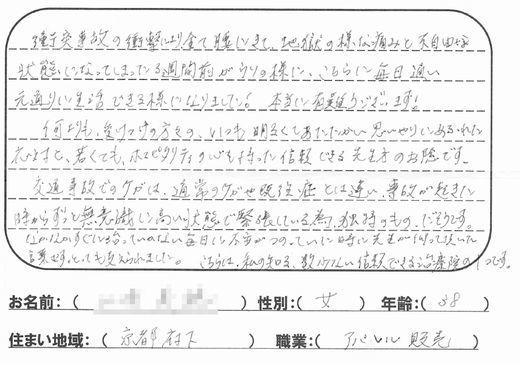 衝突事故の衝撃により全て腫にきて、地獄の様な痛みと不自由な
状態になってしまっている週間前がウソの様に、こちらに毎日通い
元通りに生活できる様になりました! 本当に有難うございます!
何よりも、受けつけの方々の、いつも明るくてあたたかい思いやりにあふれた
応対と、若くても、ホスピタリティの心を持った信頼できる先生方のお陰です。
交通事故でのケガは、通常のケガや既往症とは違い、事故が起きた
時からずっと無意識に高い状態で緊張している為、独特のもの、だそうです。
なかなかすぐに治っていかない毎日に不安がつのっていた時に先生が仰って頂いた
言葉で、とても支えられました。 こちらは、私の知る、数少ない信頼できる治療院の1つです。
お名前:( ) 性別:( 女 ) 年齢:( 38 )
住まい地域:( 京都府下 ) 職業:( アパレル販売 )